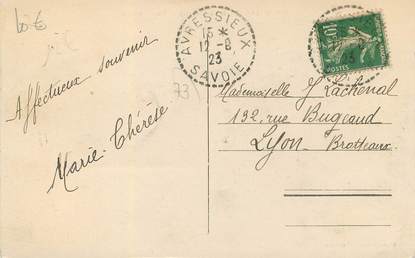 AVRESSIEUX
15 *
12 - 8
23
SAVOIE
10c
POSTES
73
Affectueux souvenir
Marie-Thérèse
Mademoiselle J Lachenal
132, rue Bugeaud
Lyon Brotteaux